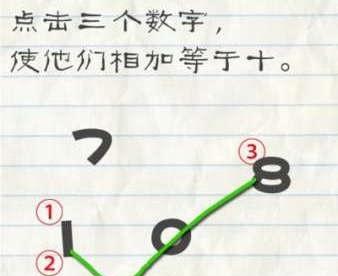 点击三个数字，
使他们相加等于十。
7
③
8
①
1
0
②